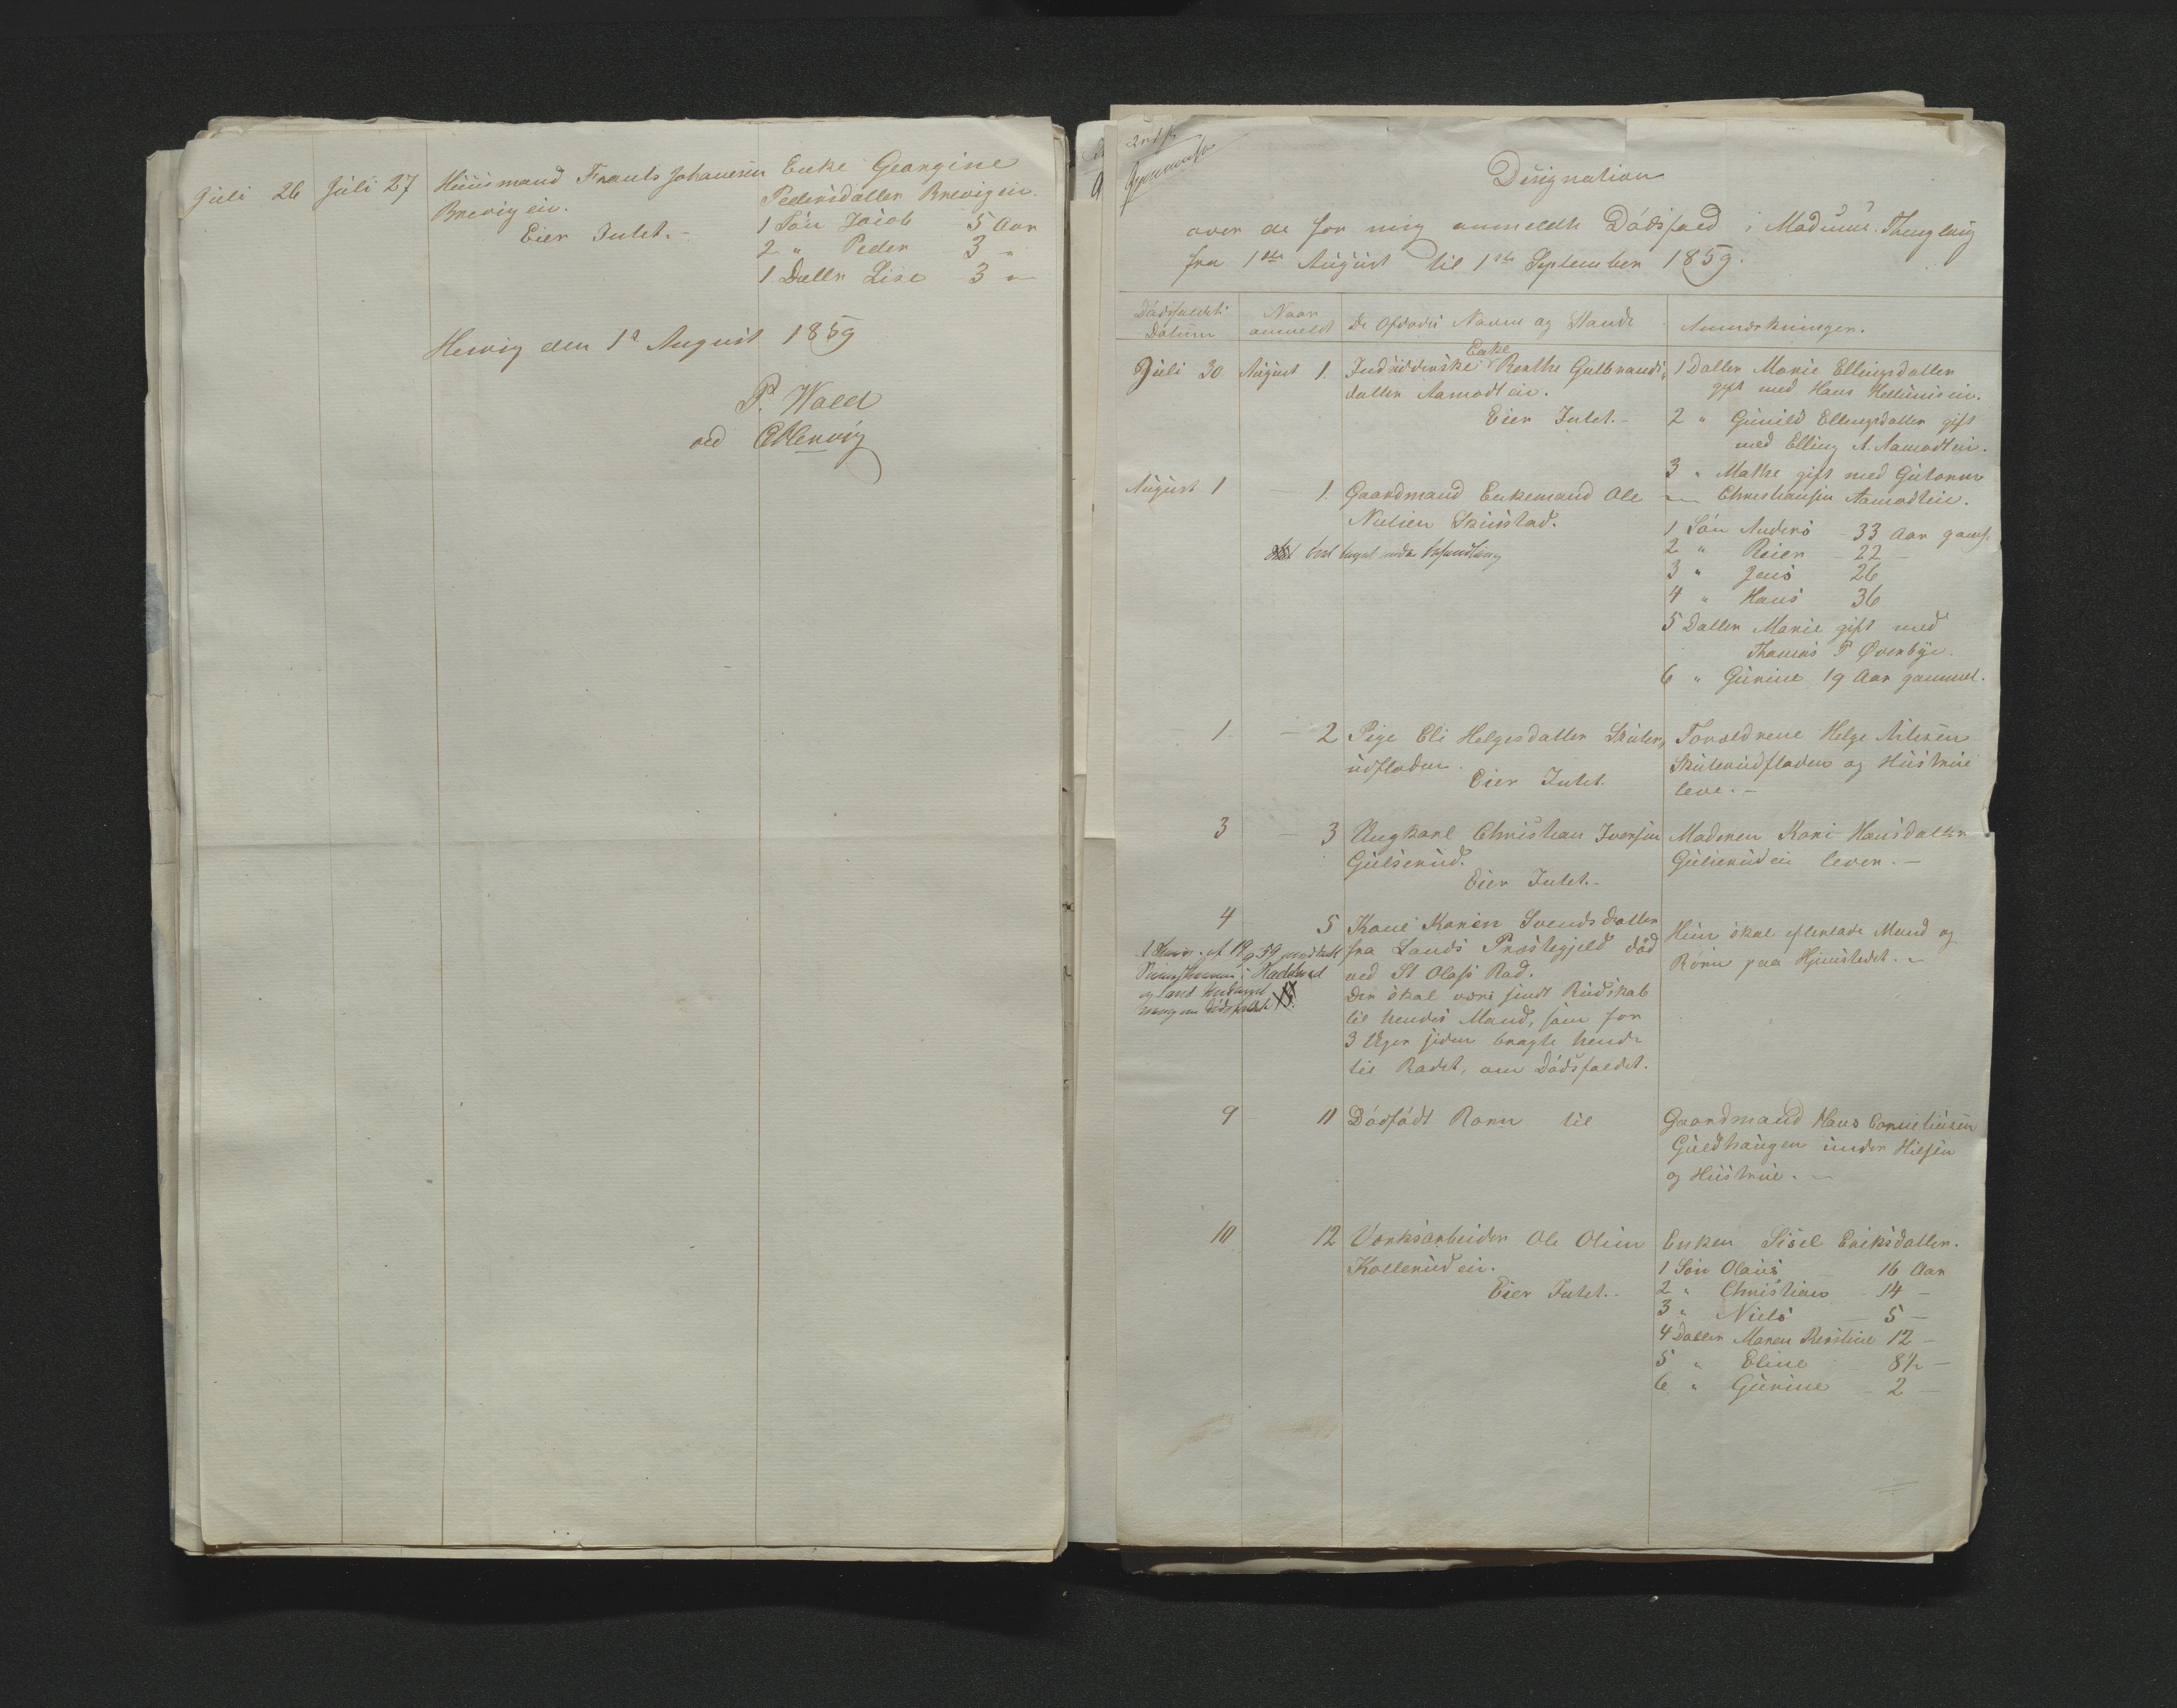 Juli 26 Juli 27 Huusmand Frants Johannesen Enke Georgine
Brevig eie. Pedersdatter Brevig eie.
Eier Intet.- 1 Søn Jacob 5 Aar
2 " Peder 3 "
1 Datter Lise 3 "
Hervig den 1 August 1859
P. Wold
ved
Designation
over de for mig anmeldte Dødsfald i Modums Thinglaug
fra 1ste August til 1ste September 1859.
Dødsfaldets Datum
Naar anmeldt
De Afdødes Navne og Stand
Anmærkninger.
Juli 30 August 1. Indsidderske Enke Berthe Gulbrands-
datter Aamodt eie.
Eier Intet.-
1 Datter Marie Ellingsdatter
gift med Hans
2 " Gunild Ellingsdatter gift
med Elling A. Aamodt eie.
3 " Mathe gift med
Christiansen Aamodteie.
August 1 - 1. Gaardmand Enkemand Ole
Nielsen Skuustad.
taget under behandling
1 Søn Anders - 33 Aar gaml.
2 " Reier - 22 -
3 " Jens 26
4 " Hans 36
5 Datter Marie gift med
Thomas P Øverbye.
6 " Gurine 19 Aar gammel.
- 1 - - 2 Pige Eli Helgesdatter Skuter-
udfladen.
Eier Intet.
Forældrene Helge
Skuterudfladen og Hustrue
leve.-
3 - 3 Ungkarl Christian Iversen
Gulsrud.
Eier Intet.-
Moderen Kari Hansdatter
Gulsrud eie lever.-
4 5 Kone Karen Svendsdatter
fra Lands Præstegjeld død
ved St Olafs Bad.
Der skal være sendt Budskab
til hendes Mand, som for
3 Uger siden bragte hende
til Badet, om Dødsfaldet.
Hun skal efterlade Mand og
Børn paa Hjemstedet.-
af 19/9 59
i Hadeland
og Land underret
ning om dødsfaldet
9 11 Dødfødt Barn til
Gaardmand Hans Corneliusen
Guldhaugen under
og Hustrue.-
10 12 Værksarbeider Ole Olsen
Kollerud eie.
Eier Intet.-
Enken Sisel Eriksdatter.
1 Søn Olaus 16 Aar
2 " Christian - 14 -
3 " Niels - 5 -
4 Datter Maren Kirstine 12 -
5 " Eline - 8½ -
6 " Gurine - 2 -